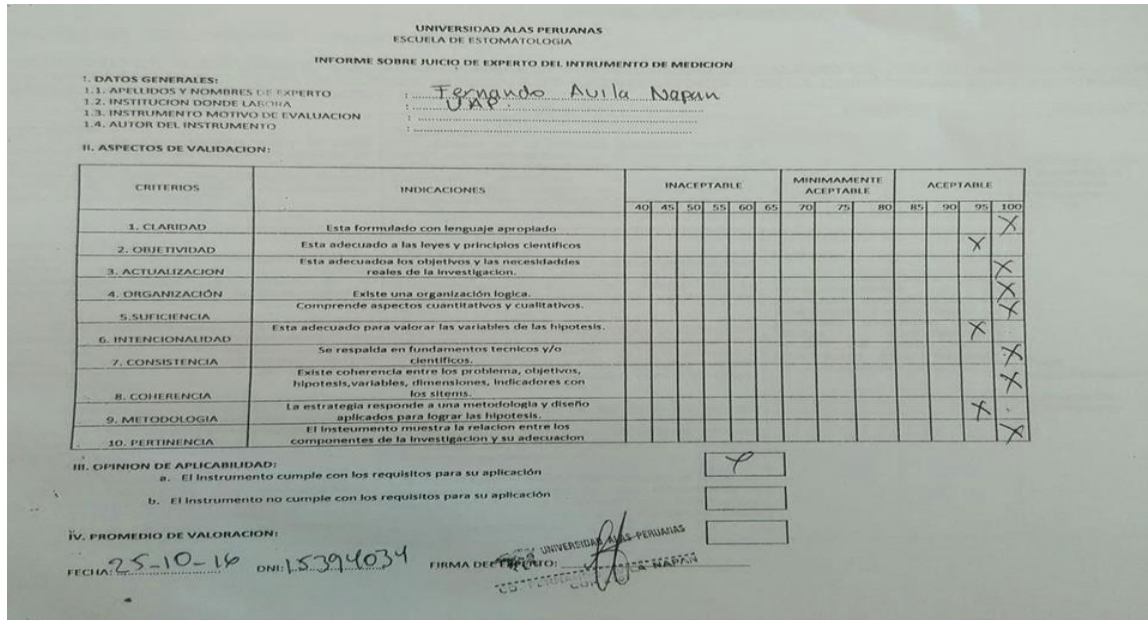 UNIVERSIDAD ALAS PERUANAS
ESCUELA DE ESTOMATOLOGIA
INFORME SOBRE JUICIO DE EXPERTO DEL INTRUMENTO DE MEDICION
I. DATOS GENERALES:
1.1. APELLIDOS Y NOMBRES DE EXPERTO : Fernando Avila Napan
1.2. INSTITUCION DONDE LABORA : UAP.
1.3. INSTRUMENTO MOTIVO DE EVALUACION :
1.4. AUTOR DEL INSTRUMENTO :
II. ASPECTOS DE VALIDACION:
CRITERIOS INDICACIONES INACEPTABLE MINIMAMENTE ACEPTABLE ACEPTABLE
40 45 50 55 60 65 70 75 80 85 90 95 100
1. CLARIDAD Esta formulado con lenguaje apropiado X
2. OBJETIVIDAD Esta adecuado a las leyes y principios cientificos X
3. ACTUALIZACION Esta adecuadoa los objetivos y las necesidaddes reales de la investigacion. X
4. ORGANIZACIÓN Existe una organización logica. X
5.SUFICIENCIA Comprende aspectos cuantitativos y cualitativos. X
6. INTENCIONALIDAD Esta adecuado para valorar las variables de las hipotesis. X
7. CONSISTENCIA Se respalda en fundamentos tecnicos y/o cientificos. X
8. COHERENCIA Existe coherencia entre los problema, objetivos, hipotesis,variables, dimensiones, indicadores con los sitems. X
9. METODOLOGIA La estrategia responde a una metodologia y diseño aplicados para lograr las hipotesis. X
10. PERTINENCIA El Insteumento muestra la relacion entre los componentes de la investigacion y su adecuacion X
III. OPINION DE APLICABILIDAD:
a. El Instrumento cumple con los requisitos para su aplicación X
b. El Instrumento no cumple con los requisitos para su aplicación
IV. PROMEDIO DE VALORACION:
UNIVERSIDAD ALAS PERUANAS
FECHA: 25-10-16 DNI: 15394034 FIRMA DEL EXPERTO:
NAPAN